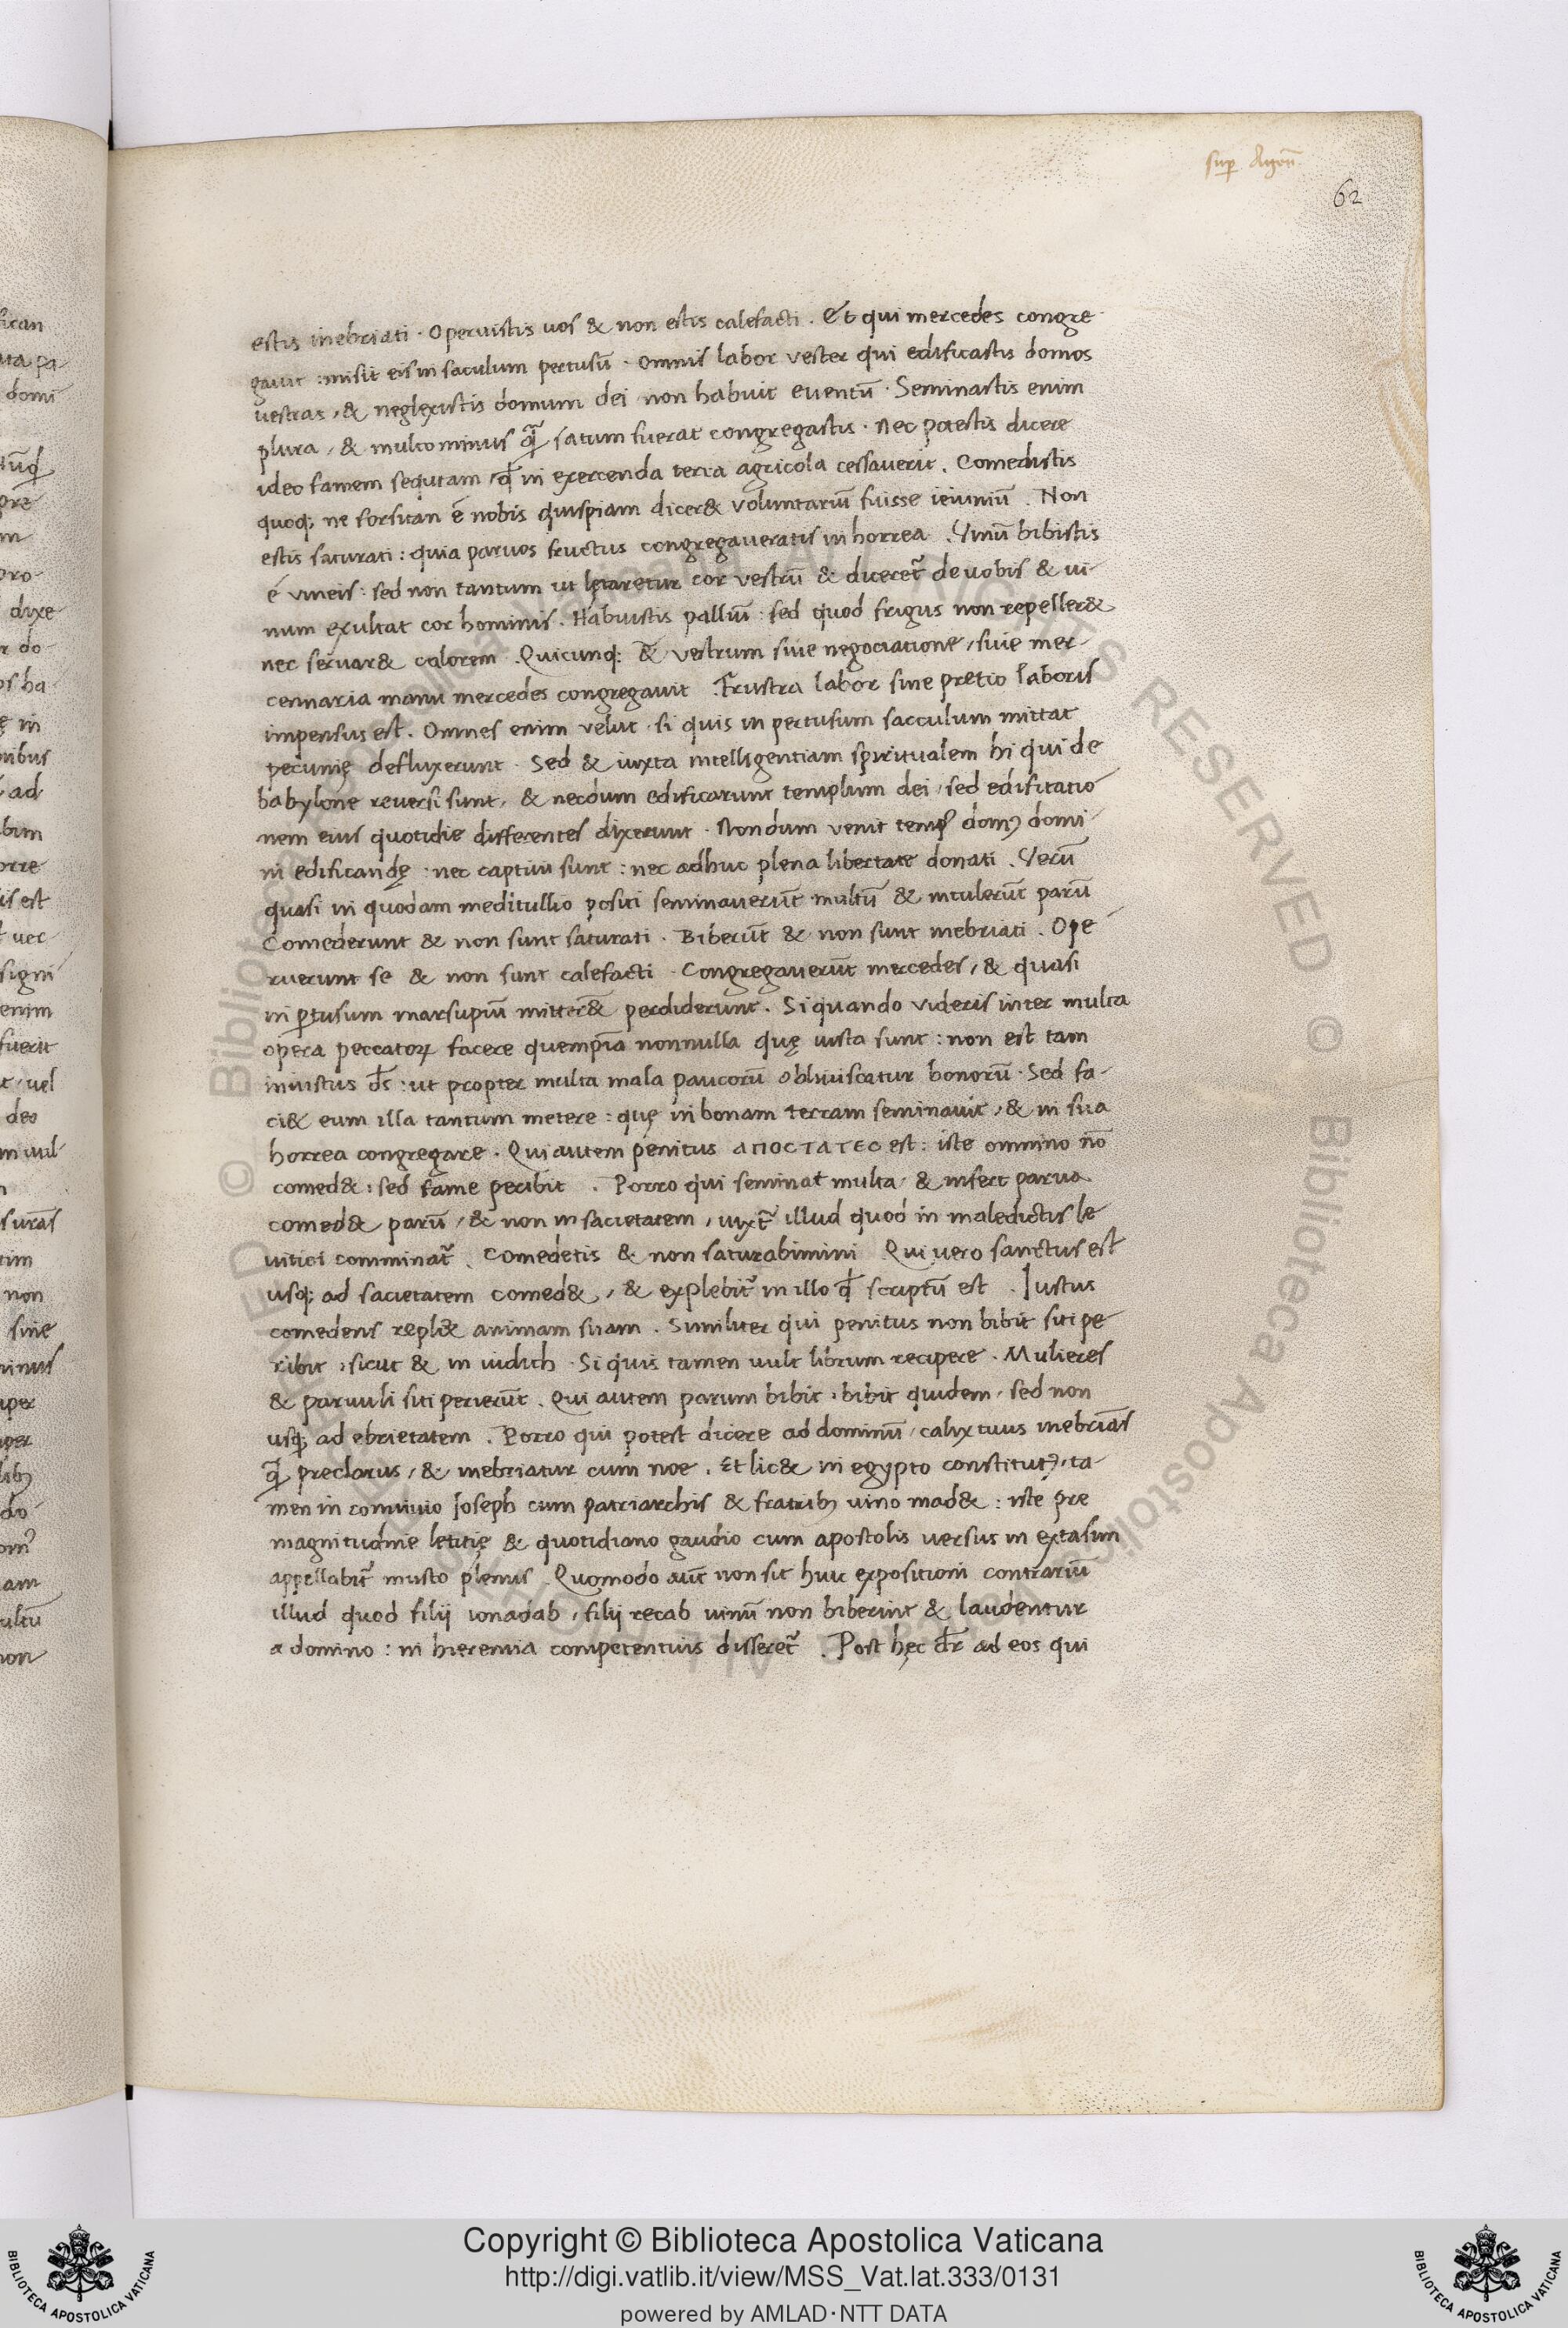 sup Ageū.
62
estis inebriati . Operuistis uos & non estis calefacti . Et qui mercedes congre
gauit : misit eis in saculum pertusū . Omnis labor vester qui edificastis domos
vestras , & neglexistis domum dei non habuit euentū . Seminastis enim
plura , & multo minus q̄ satum fuerat congregastis . Nec potestis dicere
ideo famem sequtam , qđ in exercenda terra agricola cessauerit . Comedistis
quoq; ne forsitan ē nobis quispiam dicer& voluntariū fuisse ieiuniū . Non
estis saturati : quia paruos fructus congregaueratis in horrea . Vinū bibistis
é vineis : sed non tantum ut lętaretur cor vestrū & diceret᷑ de uobis & ui-
num exultat cor hominis . Habuistis palliū : sed quod frigus non repeller&
nec seruar& calorem . Quicunq; & vestrum siue negociatione , siue mer-
cennaria manu mercedes congregauit . Frustra labor sine pretio laboris
impensus est . Omnes enim velut si quis in pertusum sacculum mittat
pecunię defluxerunt . Sed & iuxta intelligentiam spiritualem hi qui de
babylone reuersi sunt , & necdum edificarunt templum dei , sed edificatio-
nem eius quotidie differentes dixerunt . Nondum venit temp᷒ dom᷒ domi-
ni edificandę : nec captiui sunt : nec adhuc plena libertate donati . Verū
quasi in quodam meditullio positi seminauerūt multū & intulerūt parū
Comederunt & non sunt saturati . Biberūt & non sunt inebriati . Ope-
ruerunt se & non sunt calefacti . Congregauerūt mercedes , & quasi
in ꝑtusum marsupiū mitter& perdiderunt . Si quando videris inter multa
opera peccatoꝝ facere quempiā nonnulla quę iusta sunt : non est tam
iniustus đs : ut propter multa mala paucorū obliuiscatur bonorū . Sed fa-
ci& eum illa tantum metere : quę in bonam terram seminauit , & in sua
horrea congregare . Qui autem penitus ΑΠΟСΤΑΤΕС est : iste omnino nō
comed& : sed fame peribit . Porro qui seminat multa & infert parua
comed& parū , & non in sacietatem , iuxt᷑ illud quod in maledictis le
uitici comminat᷑ . Comedetis & non saturabimini Qui vero sanctus est
usq; ad sacietatem comed& , & explebit᷑ in illo qđ scriptū est . Iustus
comedens repl& animam suam . Similiter qui penitus non bibit siti pe
ribit , sicut & in iudith . Si quis tamen uult librum recipere . Mulieres
& paruuli siti perierūt . Qui autem parum bibit , bibit quidem , sed non
usq; ad ebrietatem . Porro qui potest dicere ad dominū , calix tuus inebriās
q̄ preclarus , & inebriatur cum noe . Et lic& in egypto constitut᷒ , ta-
men in conuiuio Ioseph cum patriarchis & fratrib; uino mad& : iste pre
magnitudine letitię & quotidiano gaudio cum apostolis versus in extasim
appellabit᷑ musto plenus . Quomodo aūt non sit huic expositioni contrariū
illud quod filij ionadab , filij recab uinū non biberint & laudentur
a domino : in hieremia competentius disseret᷑ . Post hęc đr ad eos qui
Copyright © Biblioteca Apostolica Vaticana
http://digi.vatlib.it/view/MSS_Vat.lat.333/0131
powered by AMLAD·NTT DATA
BIBLIOTECA APOSTOLICA VATICANA
BIBLIOTECA APOSTOLICA VATICANA